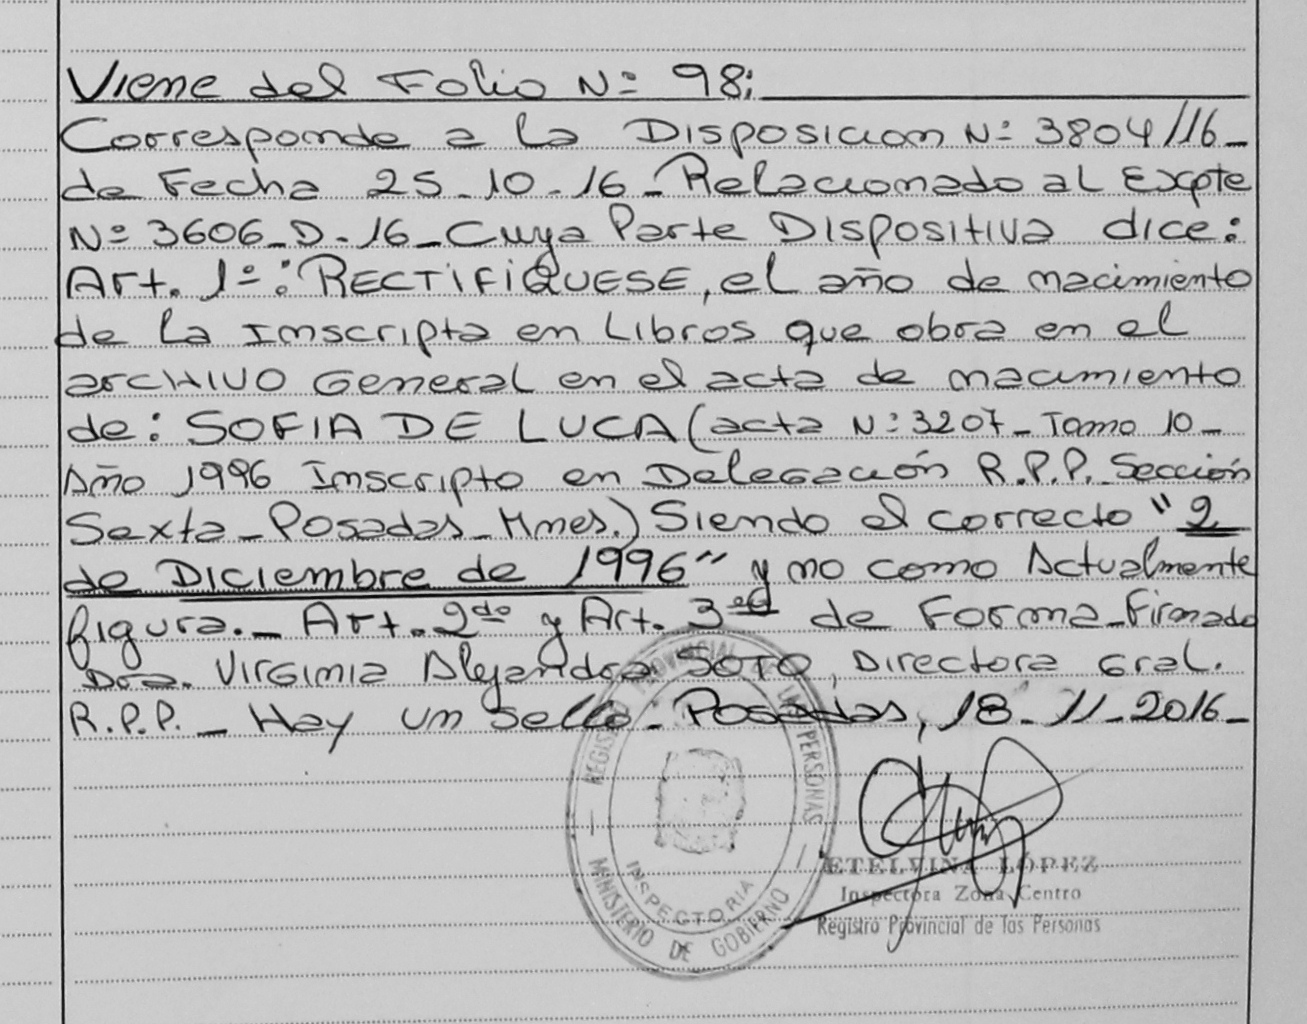 Viene del Folio Nº 98;
Corresponde a la Disposicion Nº 3804/16_
de Fecha 25-10-16_Relacionado al Expte
Nº 3606_D-16_Cuya Parte Dispositiva dice:
Art. 1º: RECTIFIQUESE, el año de nacimiento
de la Inscripta en Libros que obra en el
archivo General en el acta de nacimiento
de: SOFIA DE LUCA (acta Nº 3207_Tomo 10_
Año 1996 Inscripto en Delegación R.P.P. Sección
Sexta_Posadas_Mnes.) Siendo el correcto "2
de Diciembre de 1996" y no como Actualmente
figura._ Art. 2do y Art. 3ed de Forma_Firmado
Dra. Virginia Alejandra SOTO, Directora Gral.
R.P.P._ Hay un sello. Posadas, 18-11-2016_
REGISTRO PROVINCIAL LAS PERSONAS
INSPECTORIA
MINISTERIO DE GOBIERNO
ETELVINA LÓPEZ
Inspectora Zona Centro
Registro Provincial de las Personas